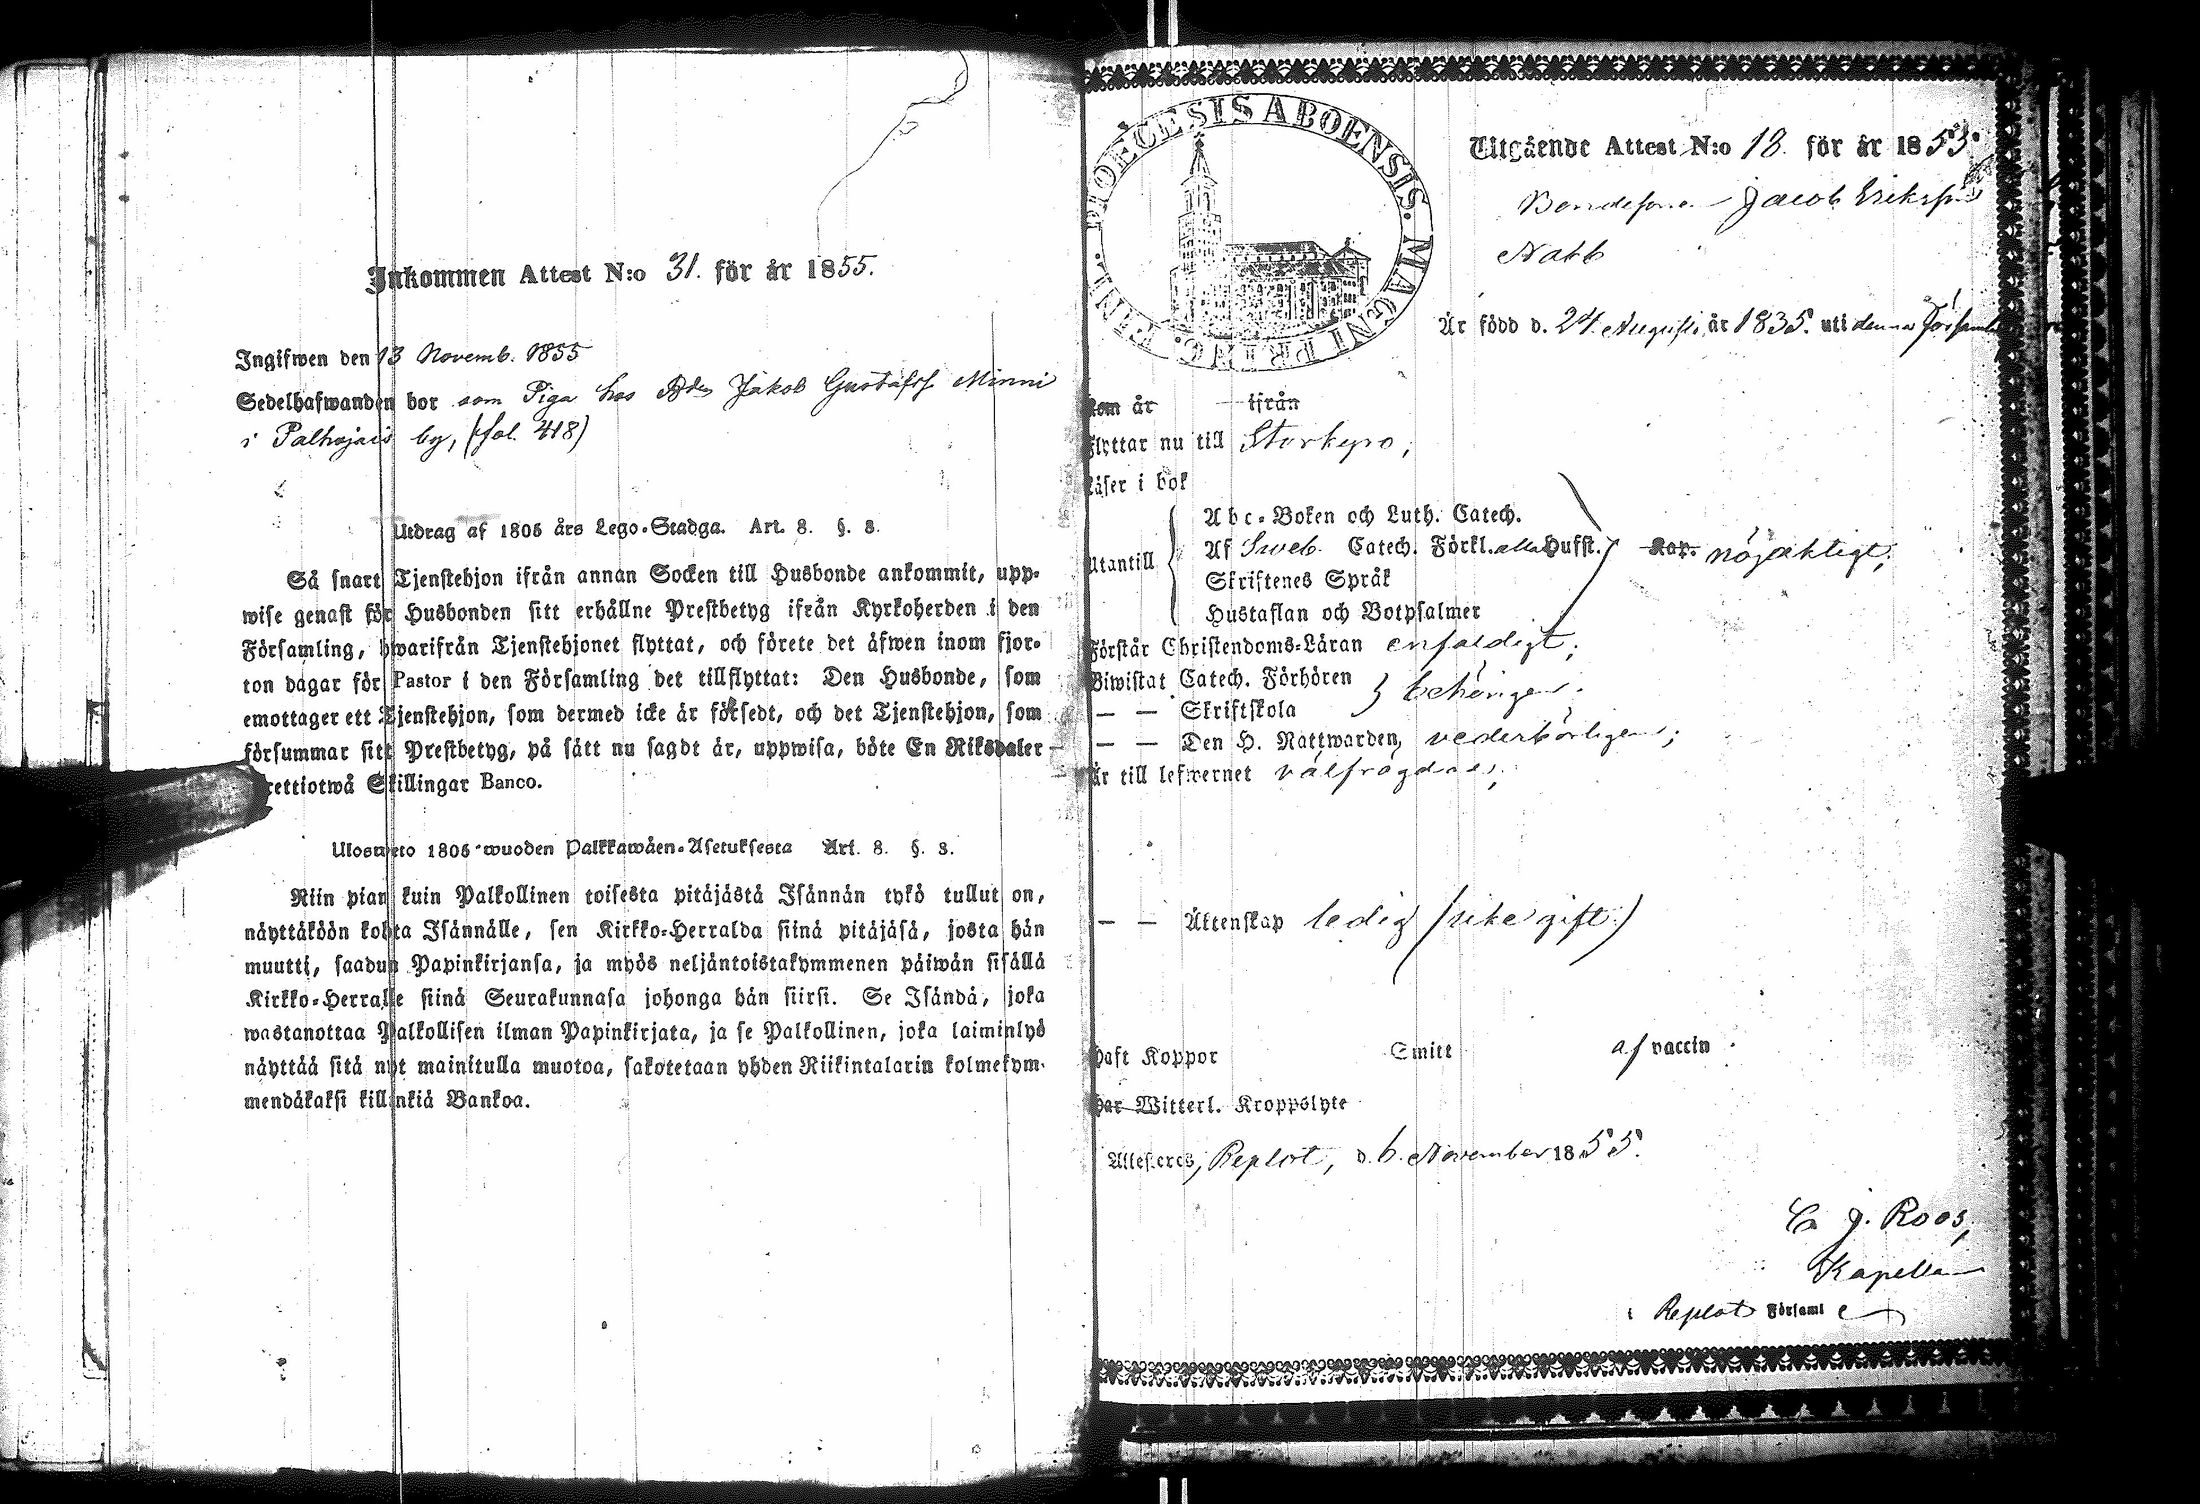 Inkommen Attest N:o 31. för år 1855.
Ingifwen den 13 Novemb. 1855
Sedelhafwanden bor som Piga hos Bden Jakob Gustafss Minni
i Palhojais by, (fol. 418)
Utdrag af 1805 års Lego-Stadga. Art. 8. §. 3.
Så snart Tjenstehjon ifrån annan Socken till Husbonde ankommit, upp-
wise genast för Husbonden sitt erhållne Prestbetyg ifrån Kyrkoherden i den
Församling, hwarifrån Tjenstehjonet flyttat, och förete det äfwen inom fjor-
ton dagar för Pastor i den Församling det tillflyttat: Den Husbonde, som
emottager ett Tjenstehjon, som dermed icke är försedt, och det Tjenstehjon, som
försummar sitt Prestbetyg, på sätt nu sagdt är, uppwisa, böte En Riksdaler
trettiotwå Skillingar Banco.
Ulosweto 1805 wuoden Palkkawäen-Asetuksesta Art. 8. §. 3.
Niin pian kuin Palkollinen toisesta pitäjästä Isännän tykö tullut on,
näyttäköön kohta Isännälle, sen Kirkko-Herralda siinä pitäjäsä, josta hän
muutti, saadun Papinkirjansa, ja myös neljäntoistakymmenen päiwän sisällä
Kirkko-Herralle siinä Seurakunnasa johonga hän siirsi. Se Isändä, joka
wastanottaa Palkollisen ilman Papinkirjata, ja se Palkollinen, joka laiminlyö
näyttää sitä nyt mainitulla muotoa, sakotetaan yhden Riikintalarin kolmekym-
mendäkaksi killinkiä Bankoa.
DIOECESIS ABOENSIS. MAGNI PRINC. FINL.
Utgående Attest N:o 18. för år 1855.
Bondesonen Jacob Eriksson
Nabb
Är född d. 24. Augusti år 1835. uti denna Församl.
Kom år ifrån
Flyttar nu till Storkyro,
Läser i bok
Abc-Boken och Luth. Catech.
Utantill Af Sweb. Catech. Förkl. alla Hufst. Kap. nöjaktigt,
Skriftenes Språk
Hustaflan och Botpsalmer
Förstår Christendoms-Läran enfaldigt,
Biwistat Catech. Förhören behörigen,
— — Skriftskola
— — Den H. Nattwarden, vederbörligen,
Är till lefwernet välfrägdad,
— — Äktenskap ledig (icke gift.)
Haft Koppor Smitt af vaccin
Har Witterl. Kroppslyte
Attesteres, Replot, d. 6. November 1855.
C J. Roos,
Kapellan
i Replot Församl